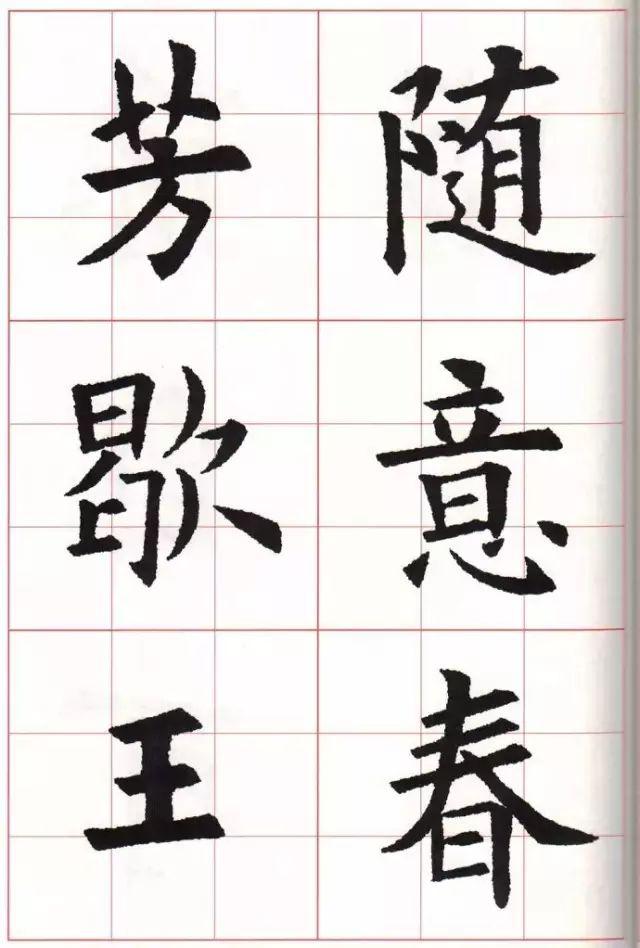 随意春
芳歇王